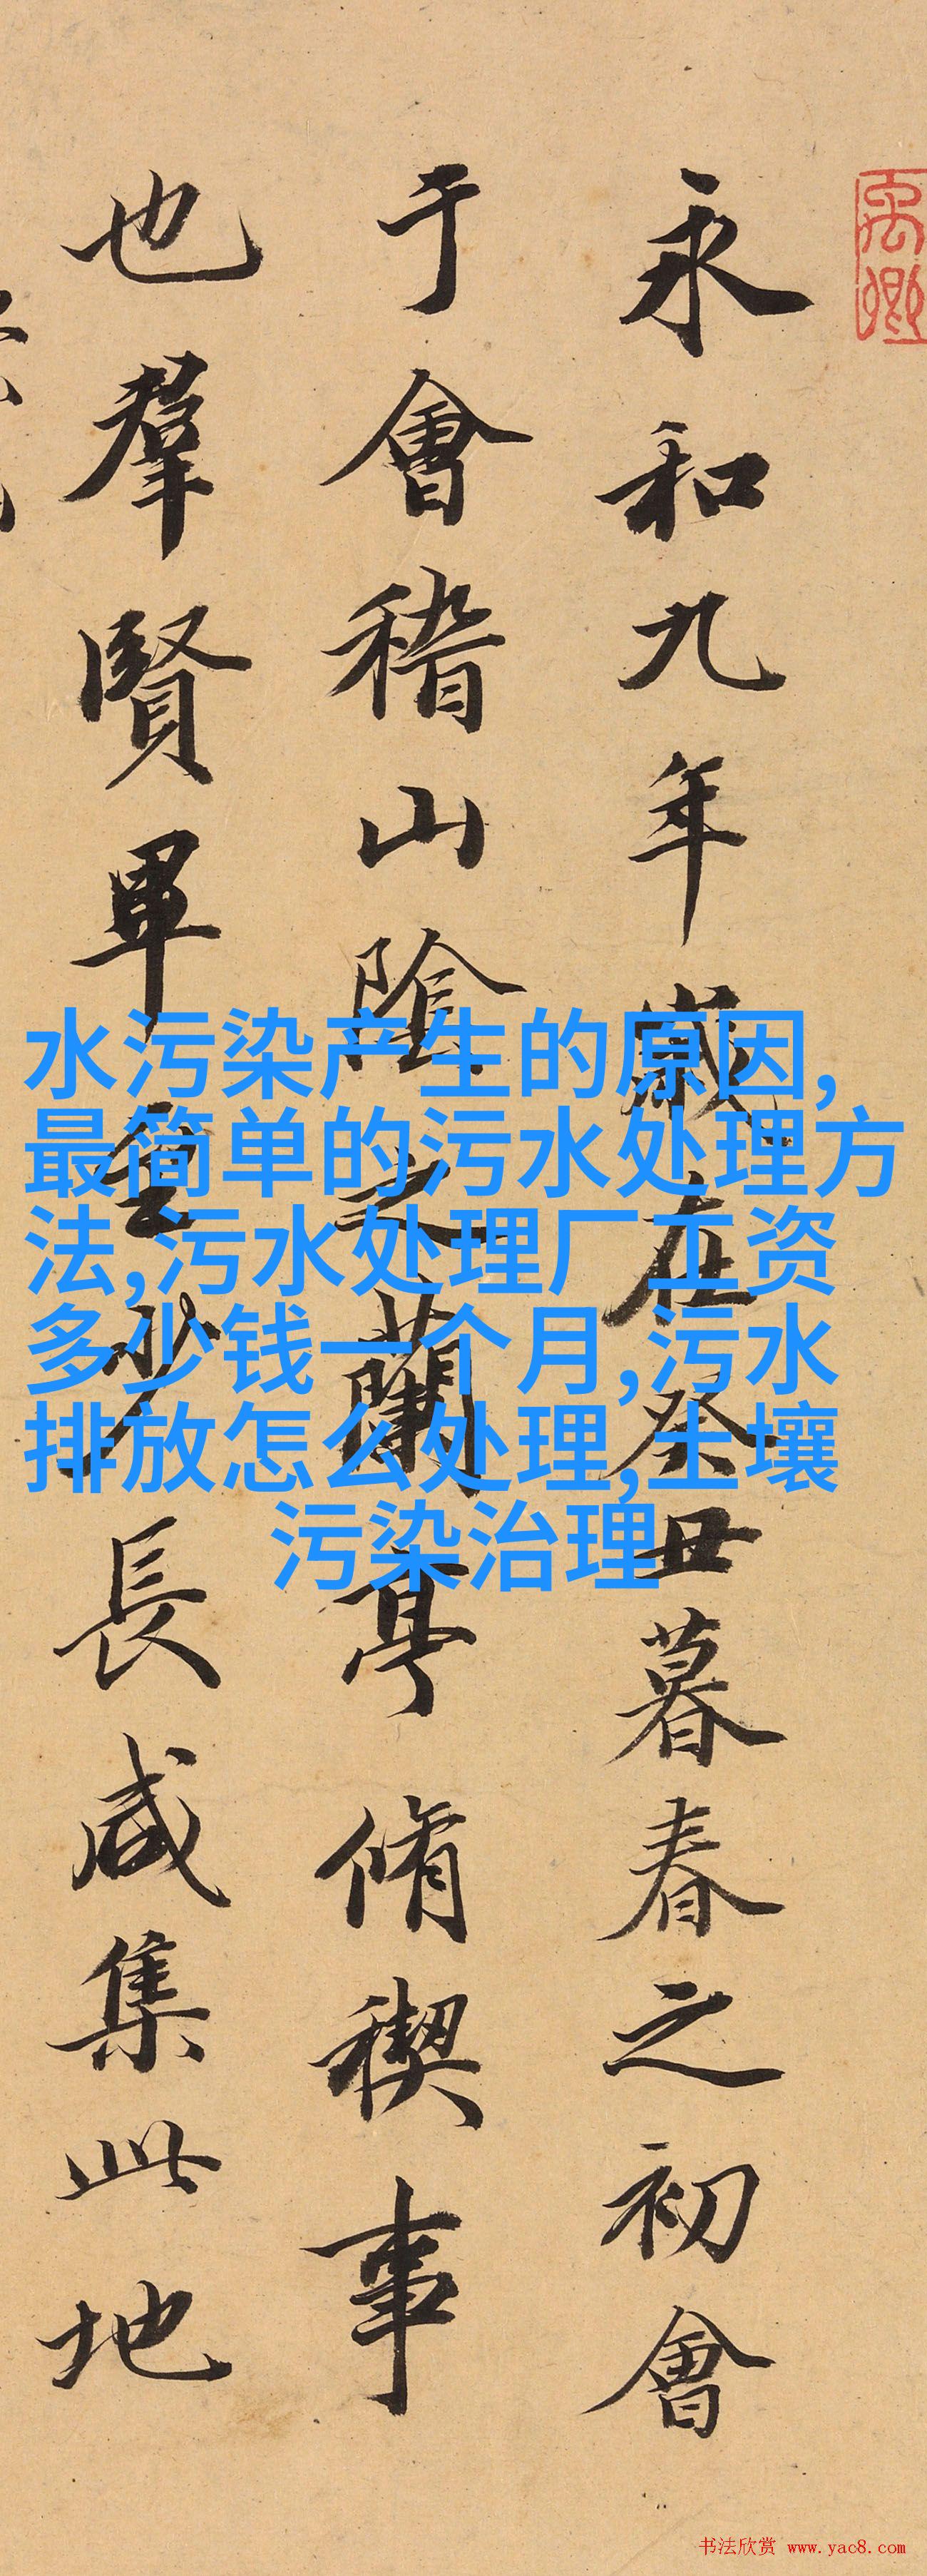 禹卿
永和九年歲在癸丑暮春之初會
于會稽山陰之蘭亭脩稧事
也羣賢畢至少長咸集此地
水污染产生的原因,
最简单的污水处理方
法,污水处理厂工资
多少钱一个月,污水
排放怎么处理,土壤
污染治理
书法欣赏 www.yac8.com